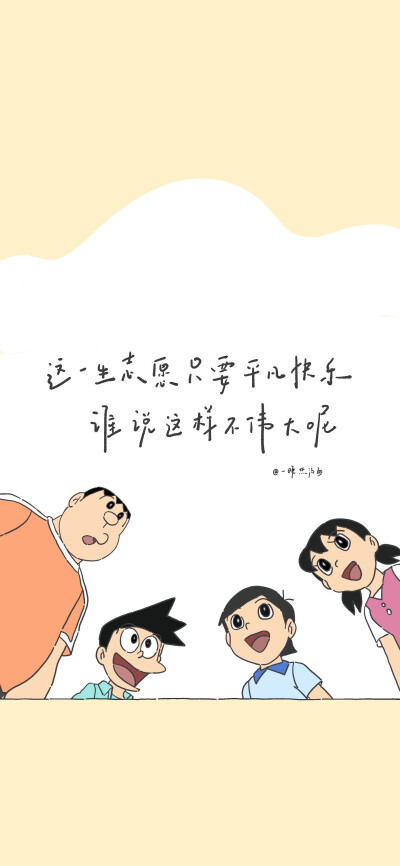 这一生志愿只要平凡快乐
谁说这样不伟大呢